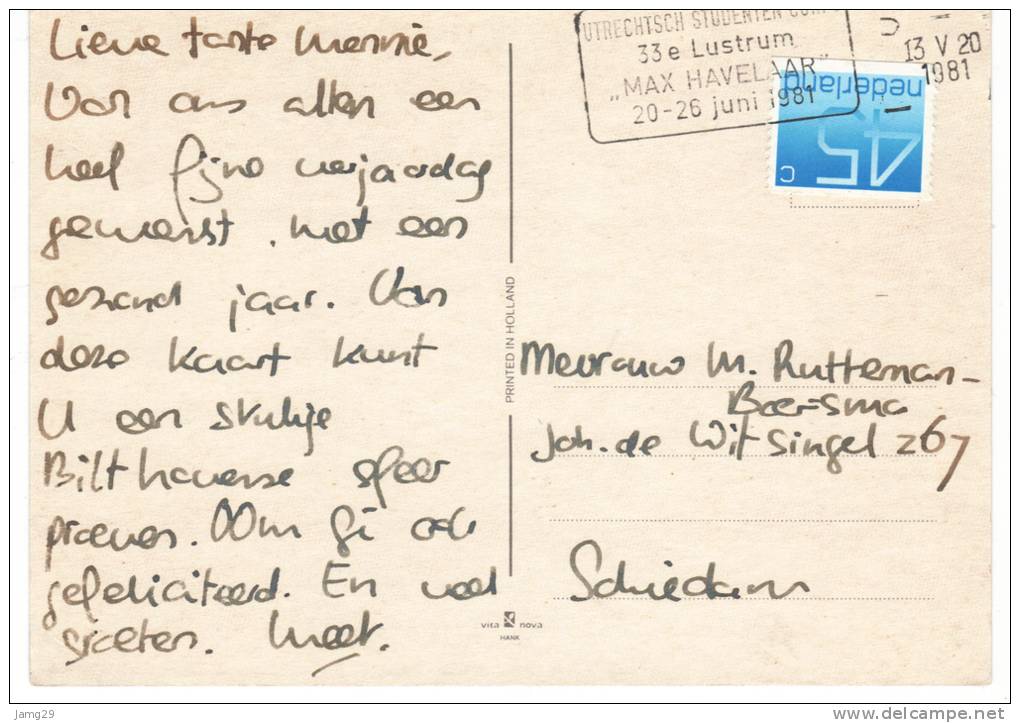 Lieve tante Mennie,
Van ons allen een
heel fijne verjaardag
gewenst, met een
gezond jaar. Van
deze kaart kunt
U een stukje
Bilthovense sfeer
proeven. Oom Gi ook
gefeliciteerd. En veel
groeten. Meet.
PRINTED IN HOLLAND
vita nova
HANK
UTRECHTSCH STUDENTEN CORPS
33e Lustrum
„MAX HAVELAAR"
20-26 juni 1981
13 V 20
1981
nederland
45
c
Mevrouw M. Rutteman-
Boersma
Joh. de Wit Singel 267
Schiedam
Jamg29
delcampe.net